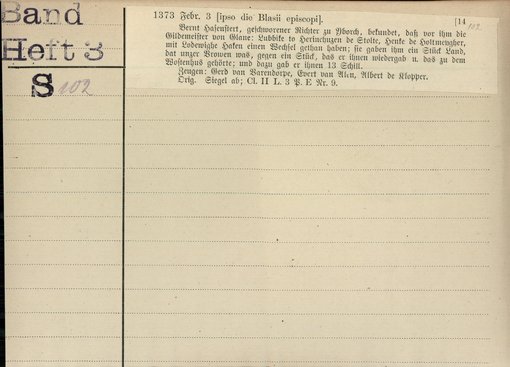 Band
Heft 3
S 102
1373 Febr. 3 [ipso die Blasii episcopi]. [14
102
Bernt Hasenstert, geschworener Richter zu Yborch, bekundet, daß vor ihm die
Gildemeister von Glane: Lubbike to Herinchuzen de Stolte, Henke de Holtmengher,
mit Lodewighe Haken einen Wechsel gethan haben; sie gaben ihm ein Stück Land,
dat unzer Vrowen was, gegen ein Stück, das er ihnen wiedergab u. das zu dem
Wostenhus gehörte; und dazu gab er ihnen 13 Schill.
Zeugen: Gerd van Varendorpe, Evert van Alen, Albert de Klopper.
Orig. Siegel ab; Cl. II L. 3 P. E Nr. 9.